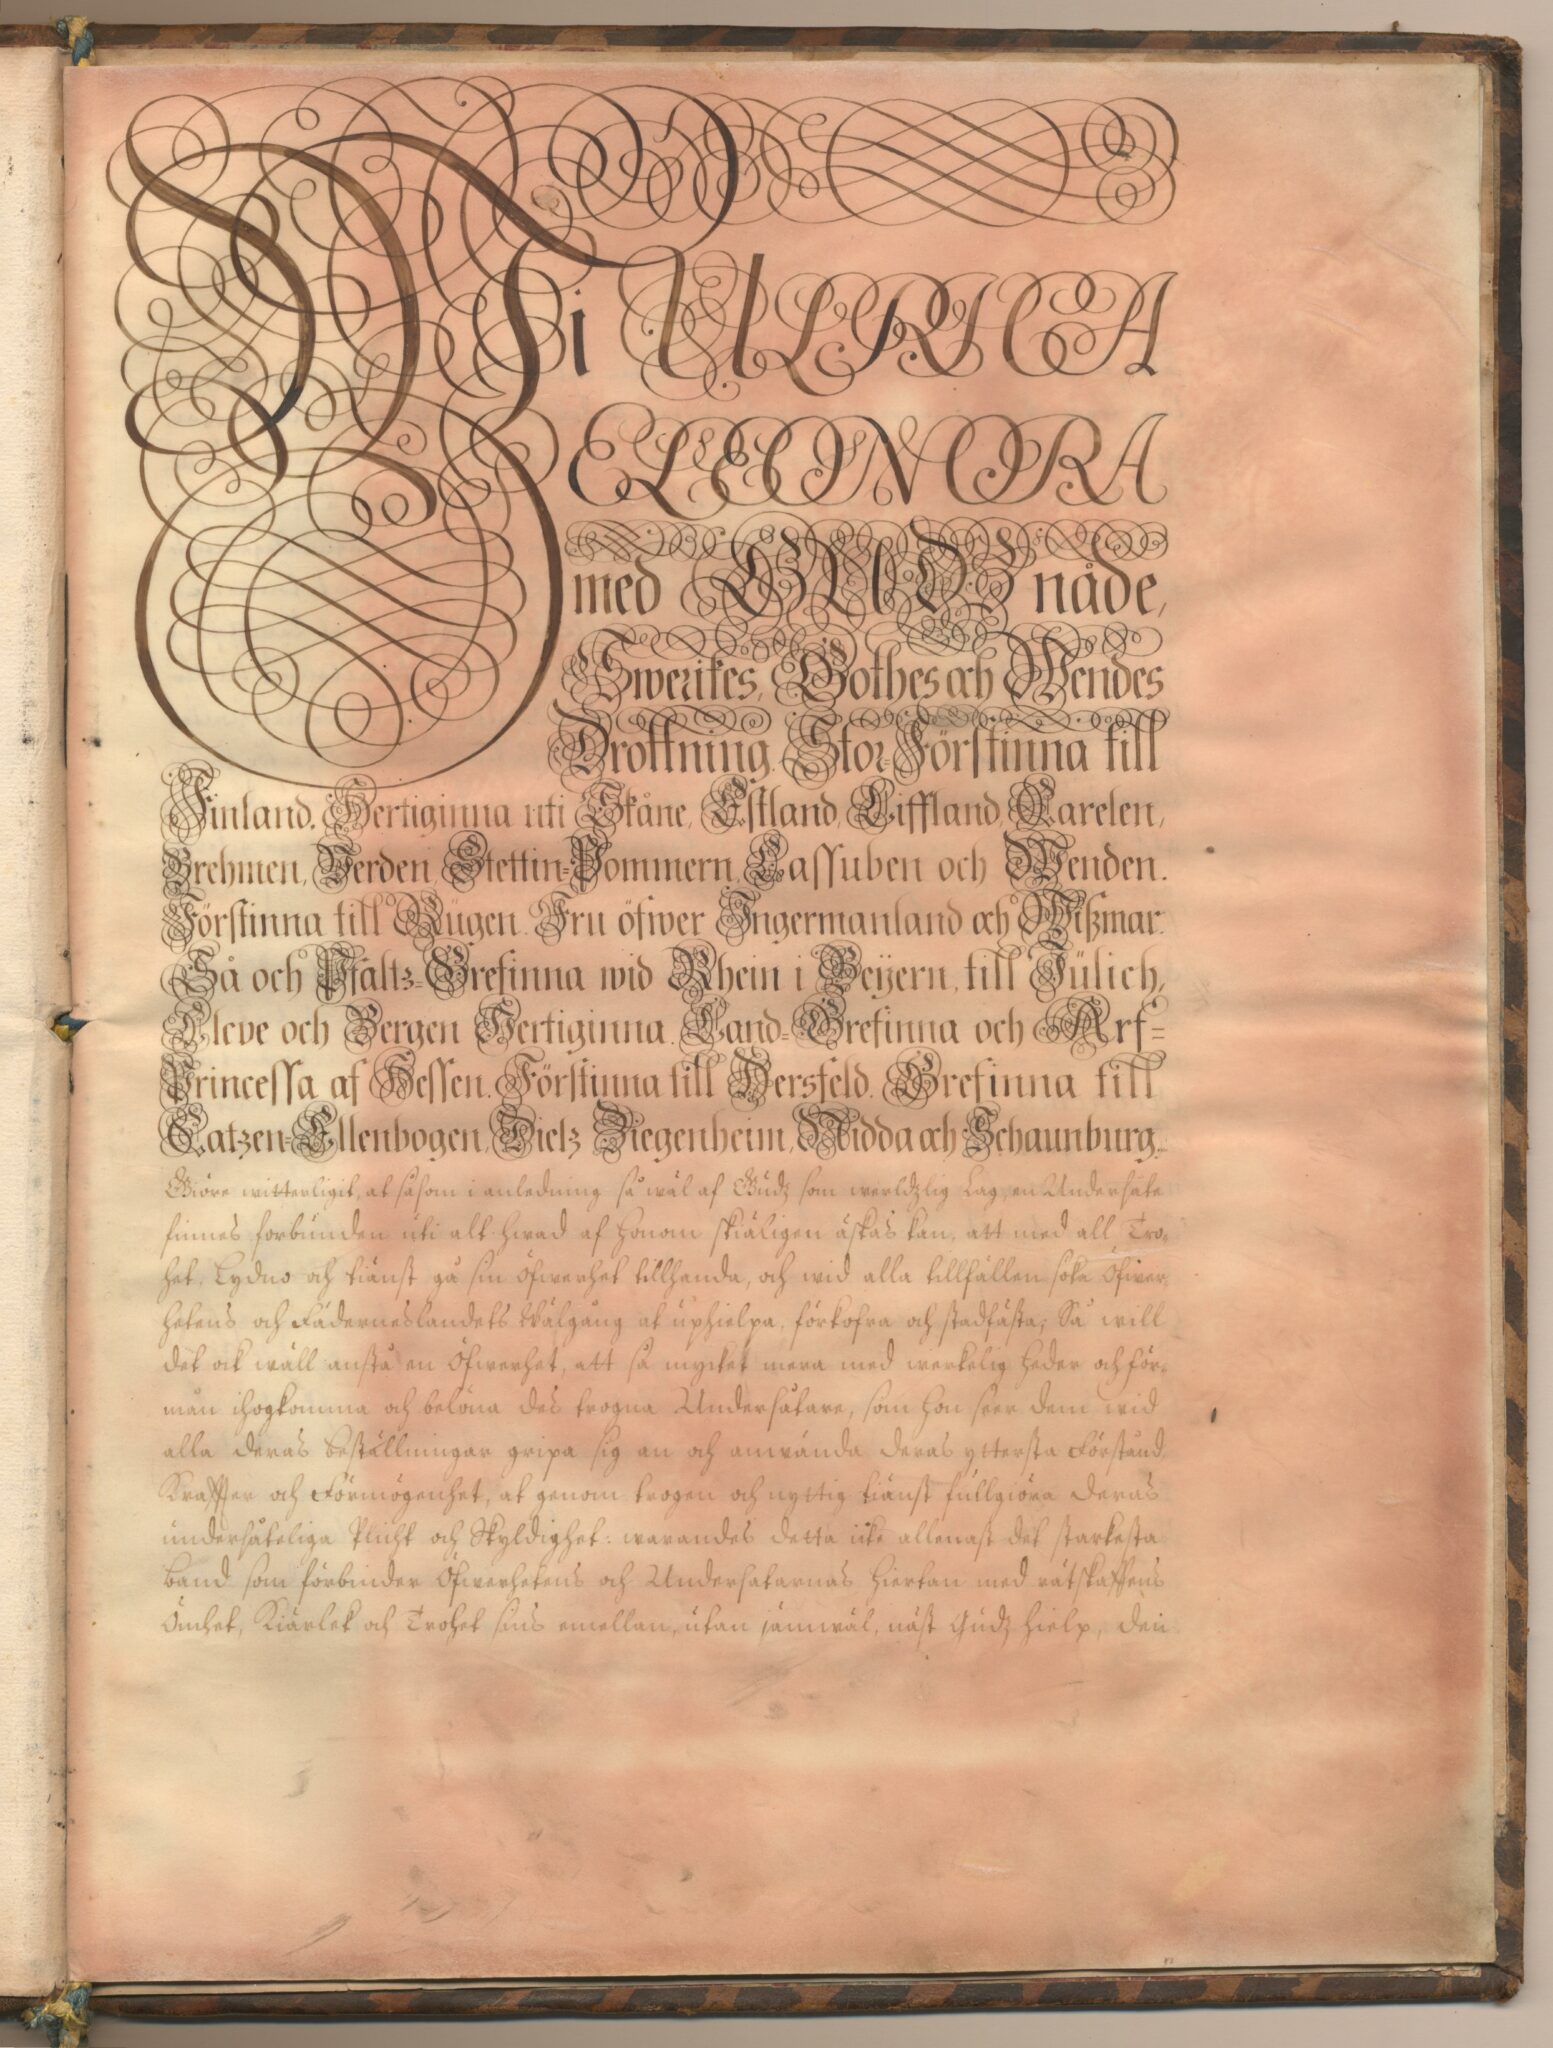 Wi ULRICA
ELEONORA
med GUDZ nåde,
Swerikes, Göthes och Wendes
Drottning, Stor-Förstinna till
Finland, Hertiginna uti Skåne, Estland, Liffland, Carelen,
Brehmen, Verden, Stettin-Pommern, Cassuben och Wenden,
Förstinna till Rügen, Fru öfwer Ingermanland och Wißmar.
Så och Pfaltz-Grefinna wid Rhein i Beijern, till Jülich,
Cleve och Bergen Hertiginna. Land-Grefinna och Arf-
Princessa af Hessen. Förstinna till Hersfeld. Grefinna till
Catzen-Ellenbogen, Dietz Ziegenheim, Nidda och Schaunburg.
Giöre witterligit, at såsom i anledning så wäl af Gudz som werldzlig Lag, en Undersåte
finnes forbunden uti alt hwad af honom skiäligen äskas kan, att med all Tro-
het, Lydno och tiänst gå sin Öfwerhet tillhanda, och wid alla tillfällen söka Öfwer-
hetens och Fäderneslandets Wälgång at uphielpa, förkofra och stadfästa; Så will
det ock wäll anstå en Öfwerhet, att så mycket mera med werkelig heder och för-
mån ihogkomma och belöna des trogna Undersåtare, som hon seer dem wid
alla deras beställningar gripa sig an och använda deras yttersta Förstånd,
Kraffter och Förmögenhet, at genom trogen och nyttig tiänst fullgiöra deras
undersåteliga Plicht och Skyldighet: warandes detta icke allenast det starkesta
band som förbinder Öfwerhetens och Undersåtarnas hiertan med rätskaffens
Ömhet, Kiärlek och Trohet sins emellan, utan jämwäl, näst Gudz hielp, den